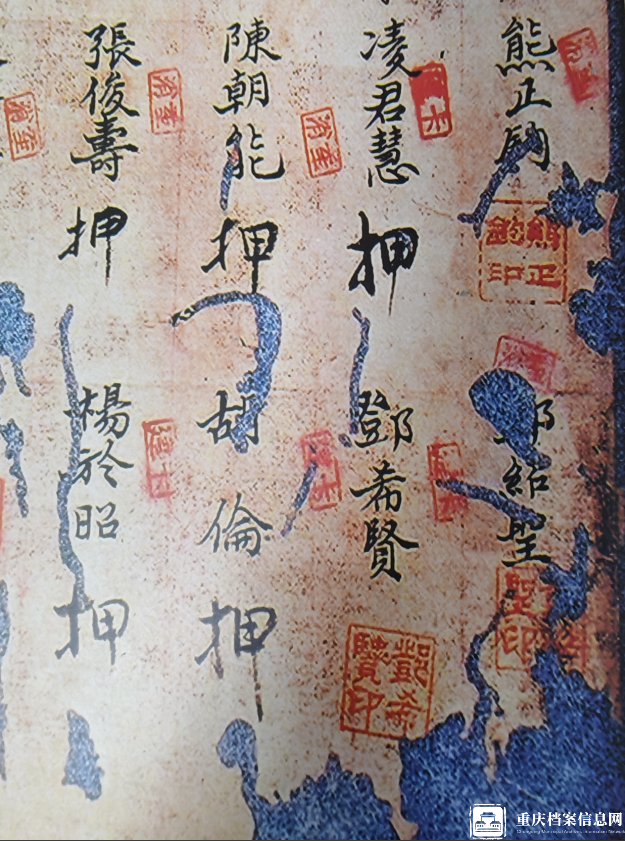 熊正鈞
熊正鈞印
紹聖
聖印
凌君慧 押
鄧希賢
鄧希賢印
陳朝能 押
胡倫 押
張俊壽 押
楊於昭 押
重庆档案信息网